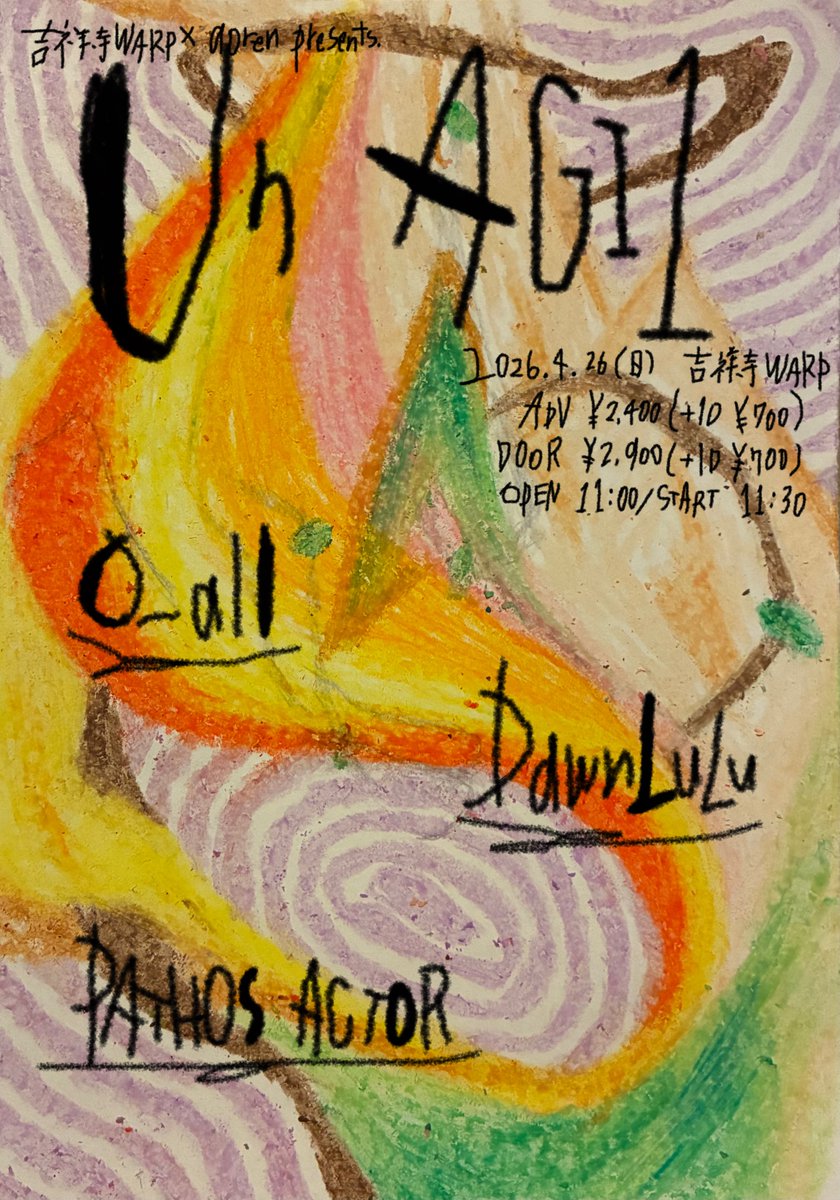 吉祥寺WARP× apren presents.
Un AGI1
2026.4.26(日) 吉祥寺WARP
ADV ¥2,400(+1D ¥700)
DOOR ¥2,900(+1D ¥700)
OPEN 11:00/START 11:30
O_all
DawnLuLu
PATHOS ACTOR